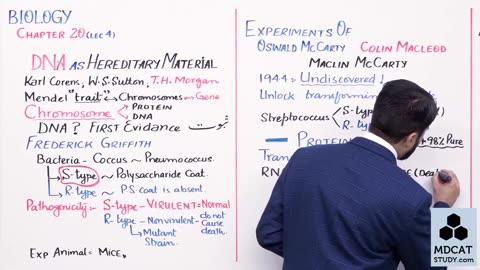 BIOLOGY
CHAPTER 20 (LEC 4)
DNA AS HEREDITARY MATERIAL
Karl Corens, W.S.Sutton, T.H. Morgan
Mendel "trait" → Chromosomes → Gene
Chromosome → PROTEIN
DNA
DNA? FIRST EVIDENCE ثبوت
FREDERICK GRIFFITH
Bacteria - Coccus ~ Pneumococcus.
S-type ~ Polysaccharide Coat.
R-type ~ P.S.coat is absent.
Pathogenicity:- S-type - VIRULENT = Normal
R-type - Nonvirulent - do not cause death.
Mutant Strain.
Exp Animal = MICE,
EXPERIMENTS OF
OSWALD MCCARTY COLIN MACLEOD
MACLIN MCCARTY
1944 = Undiscovered!
Unlock transforming
Streptococcus S-type
R-type
PROTEIN +98% Pure
Trans
RN
MDCAT
STUDY.com